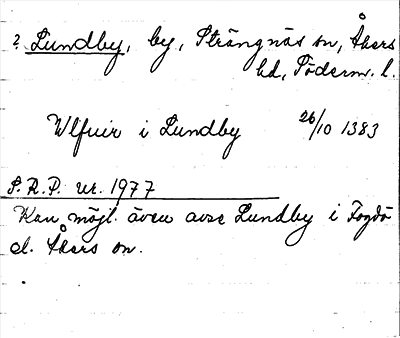 ? Lundby, by, Strängnäs sn, Åkers
hd, Söderm. l.
Wlfuir i Lundby 26/10 1383
S.R.P. nr. 1977
Kan möjl. även avse Lundby i Fogdö
el. Åkers sn.